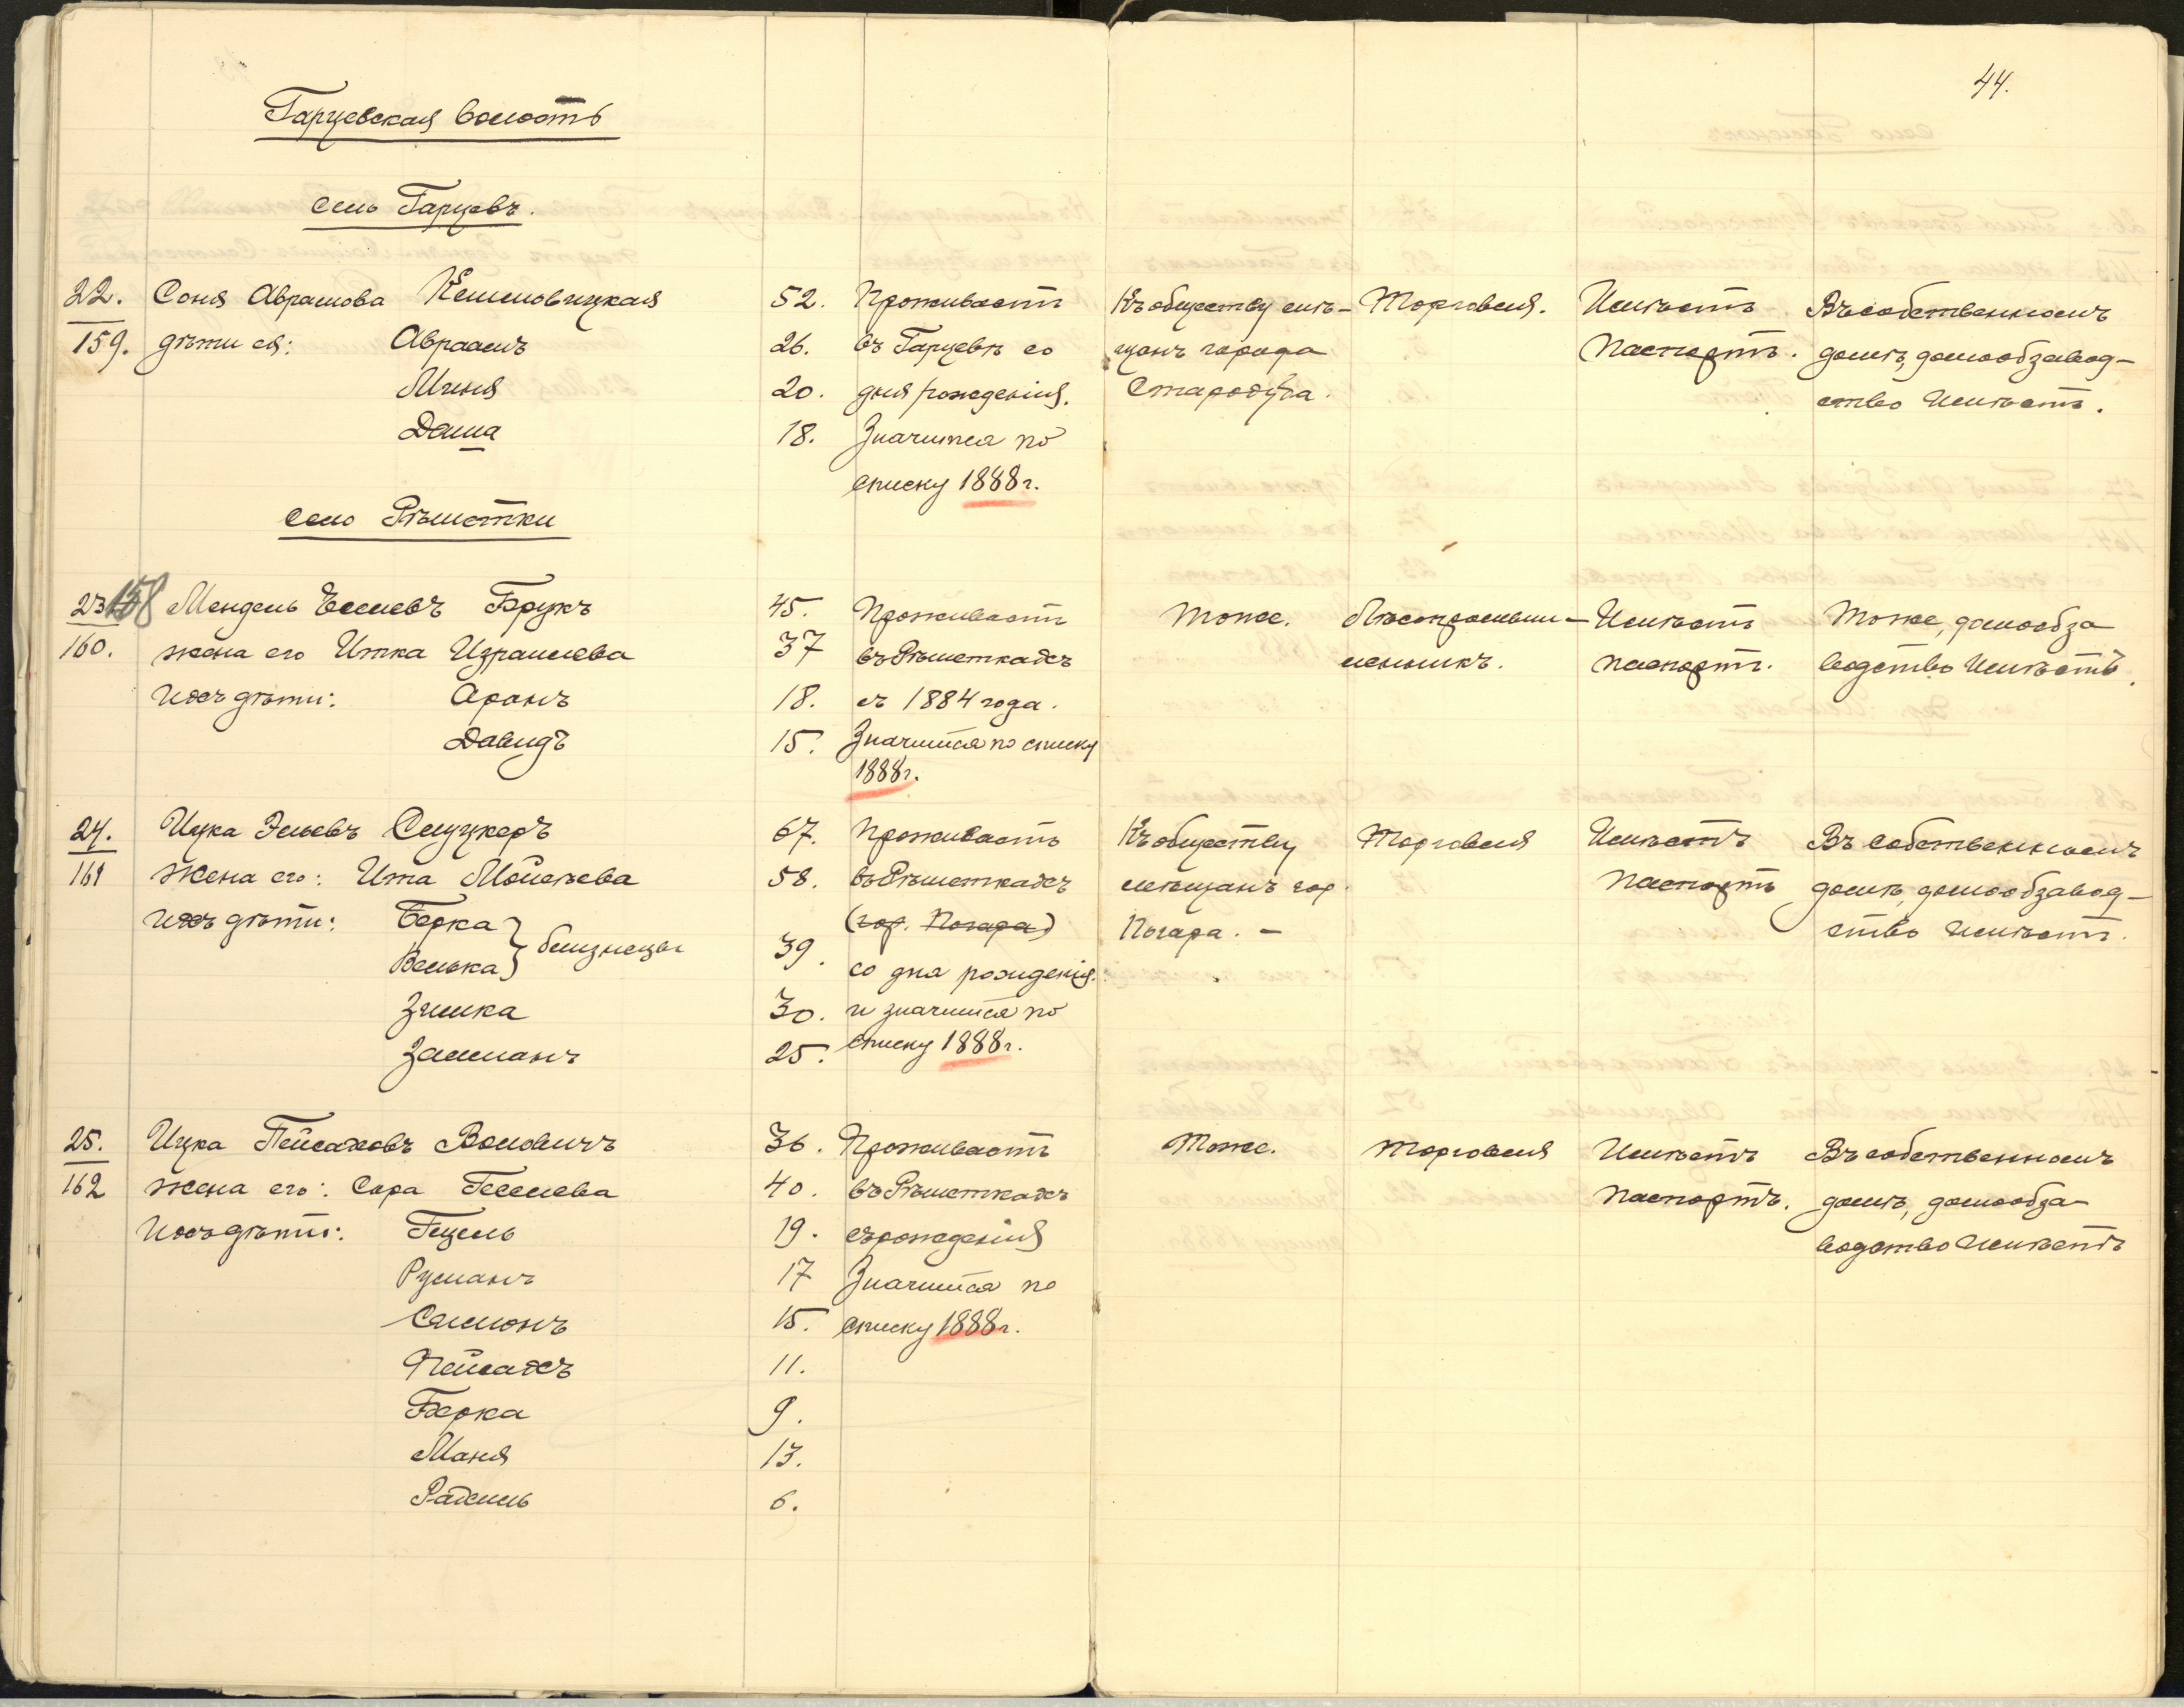 44.
Гарцевская волость
село Гарцевъ.
22. Соня Абрамова 52. Проживаетъ Къ обществу мѣ- Торговля. Имѣетъ Въ собственномъ
159. дѣти ея: Авраамъ 26. въ Гарцевѣ со щанъ города паспортъ. домѣ, домообзавод-
Миня 20. дня рожденія. Стародуба. ство имѣетъ.
Даша 18. Значится по
списку 1888 г.
село Рѣшотки
23 158 Мендель Брукъ 45. Проживаетъ Тоже. Имѣетъ Тоже, домообза
160. жена его Итка Израилева 37 въ Рѣшеткахъ паспортъ. водство имѣетъ.
ихъ дѣти: Аронъ 18. съ 1884 года.
Давидъ 15. Значится по списку
1888 г.
24. Ицка Эльевъ Слуцкеръ 67. Проживаетъ Къ обществу Торговля Имѣетъ Въ собственномъ
161 жена его: Ита Мойсѣева 58. въ Рѣшеткахъ мѣщанъ гор. паспортъ домѣ, домообзавод-
ихъ дѣти: Берка (гор. Погара) Погара. - ство имѣетъ.
Велька } близнецы 39. со дня рожденія.
Зимка 30. и значится по
Залманъ 25. списку 1888 г.
25. Ицка Пейсаховъ Воловичъ 36. Проживаетъ Тоже. Торговля Имѣетъ Въ собственномъ
162 жена его: Сара Геселева 40. въ Рѣшеткахъ паспортъ. домѣ, домообза
ихъ дѣти: Гецель 19. съ рожденія водство имѣетъ
Рувманъ 17 Значится по
Самонъ 15. списку 1888 г.
Пейсахъ 11.
Берка 9.
Маня 13.
Рахиль 6.